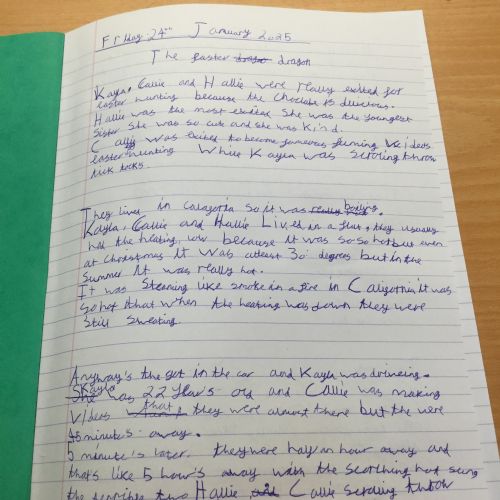 Friday 24th January 2025
The easter dragon
Kayla, Callie and Hallie were really exited for
easter hunting because the choclate is delicious.
Hallie was the most excited She was the youngest
Sister She was so cute and she was kind.
Cally was exited to become fameous fliming veideos
easter hunting While Kayla was scrolling throw
tick tocks.
They lives in so it was boiling.
Kayla, Callie and Hallie Lived in a flat, they usually
had the heating low because it was so so hot but even
at Chrestmas it was atleast 30 degrees but in the
summer it was really hot.
It was Steaming like smoke in a fire in it was
so hot that when the heating was down they were
still sweating.
Anyway's the got in the car and Kayla was driveing.
Kayla was 22 year's old and Callie was making
videos that they were almost there but the were
45 minute's away.
5 minute's later. they were half an hour away and
that's like 5 hour's away with the scorthing hot sung
the two Hallie Callie scroling throw